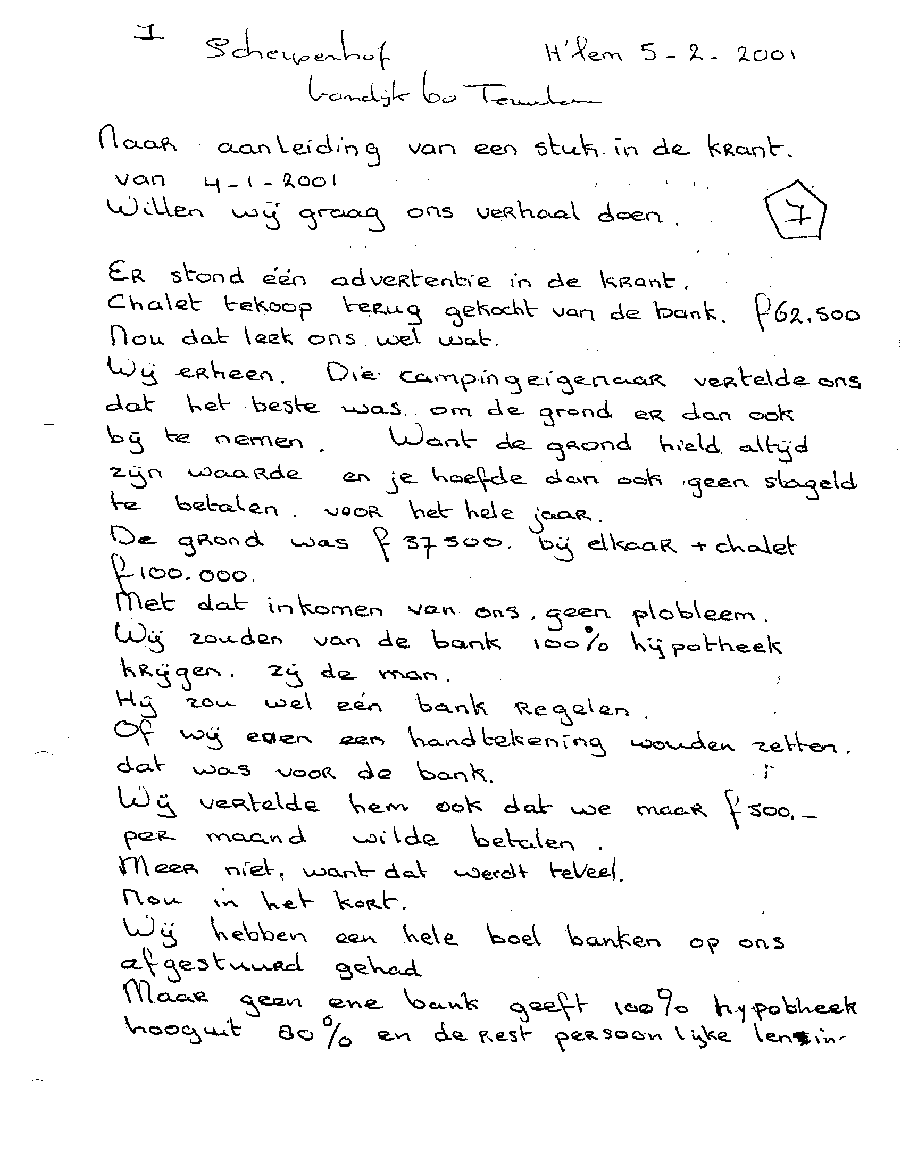 I
H'lem 5-2-2001
Naar aanleiding van een stuk in de krant.
van 4-1-2001
Willen wij graag ons verhaal doen.
7
Er stond één advertentie in de krant.
Chalet tekoop terug gekocht van de bank. f62.500
Nou dat leek ons wel wat.
Wij erheen. Die campingeigenaar vertelde ons
dat het beste was om de grond er dan ook
bij te nemen. Want de grond hield altijd
zijn waarde en je hoefde dan ook geen stageld
te betalen. voor het hele jaar.
De grond was f 37500. bij elkaar + chalet
f100.000.
Met dat inkomen van ons, geen plobleem.
Wij zouden van de bank 100% hijpotheek
krijgen. zij de man.
Hij zou wel eén bank regelen.
Of wij even een handtekening wouden zetten.
dat was voor de bank.
Wij vertelde hem ook dat we maar f 500,-
per maand wilde betalen.
Meer niet, want dat werdt teveel.
Nou in het kort.
Wij hebben een hele boel banken op ons
afgestuurd gehad
Maar geen ene bank geeft 100% hypotheek
hooguit 80% en de rest persoonlijke